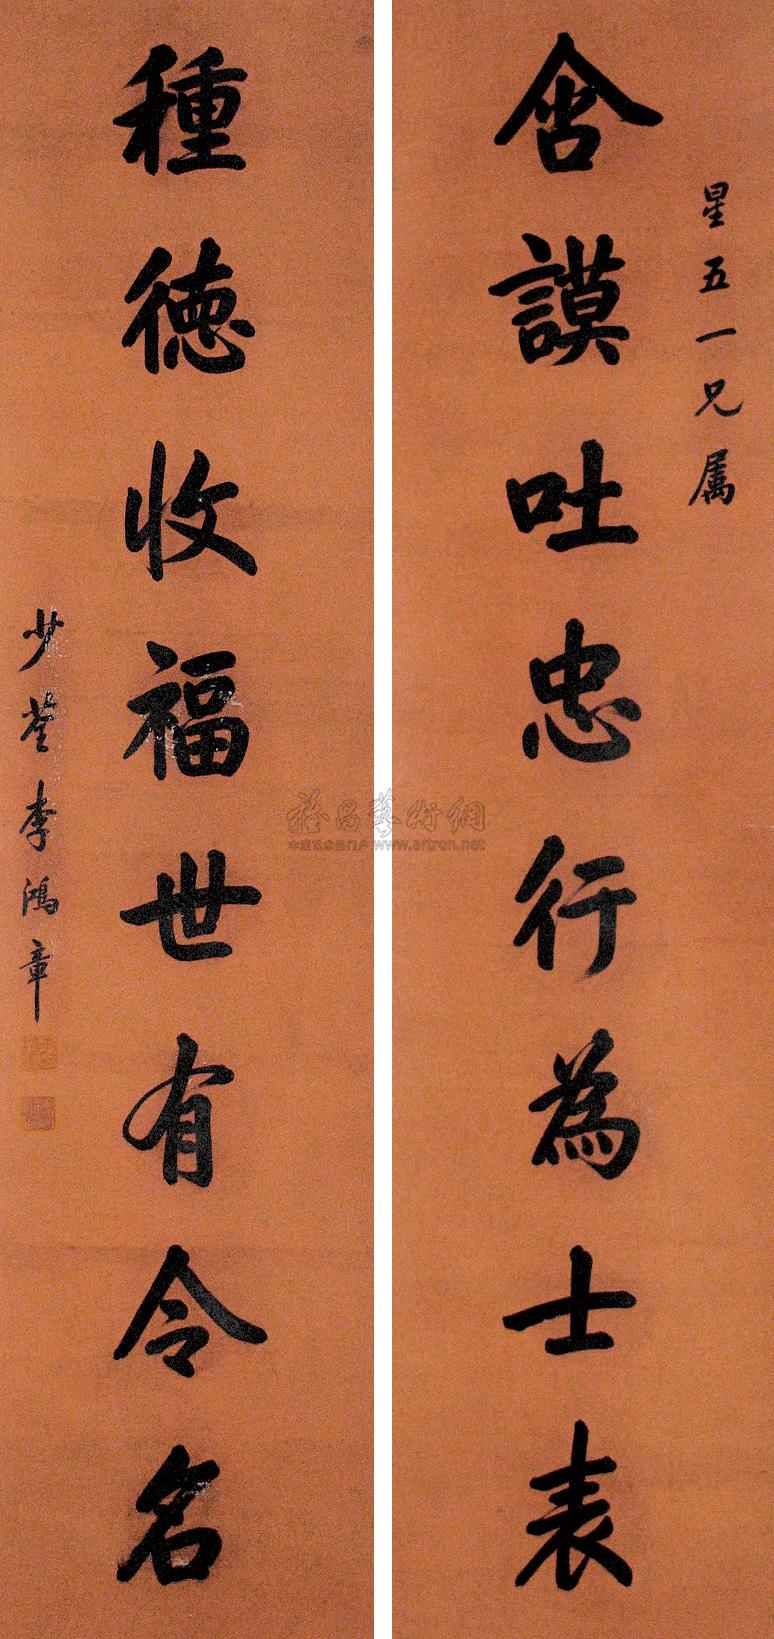 星五一兄属
含謨吐忠行為士表
種徳收福世有令名
少荃李鴻章
雅昌藝術網
中国艺术品门户 www.artron.net